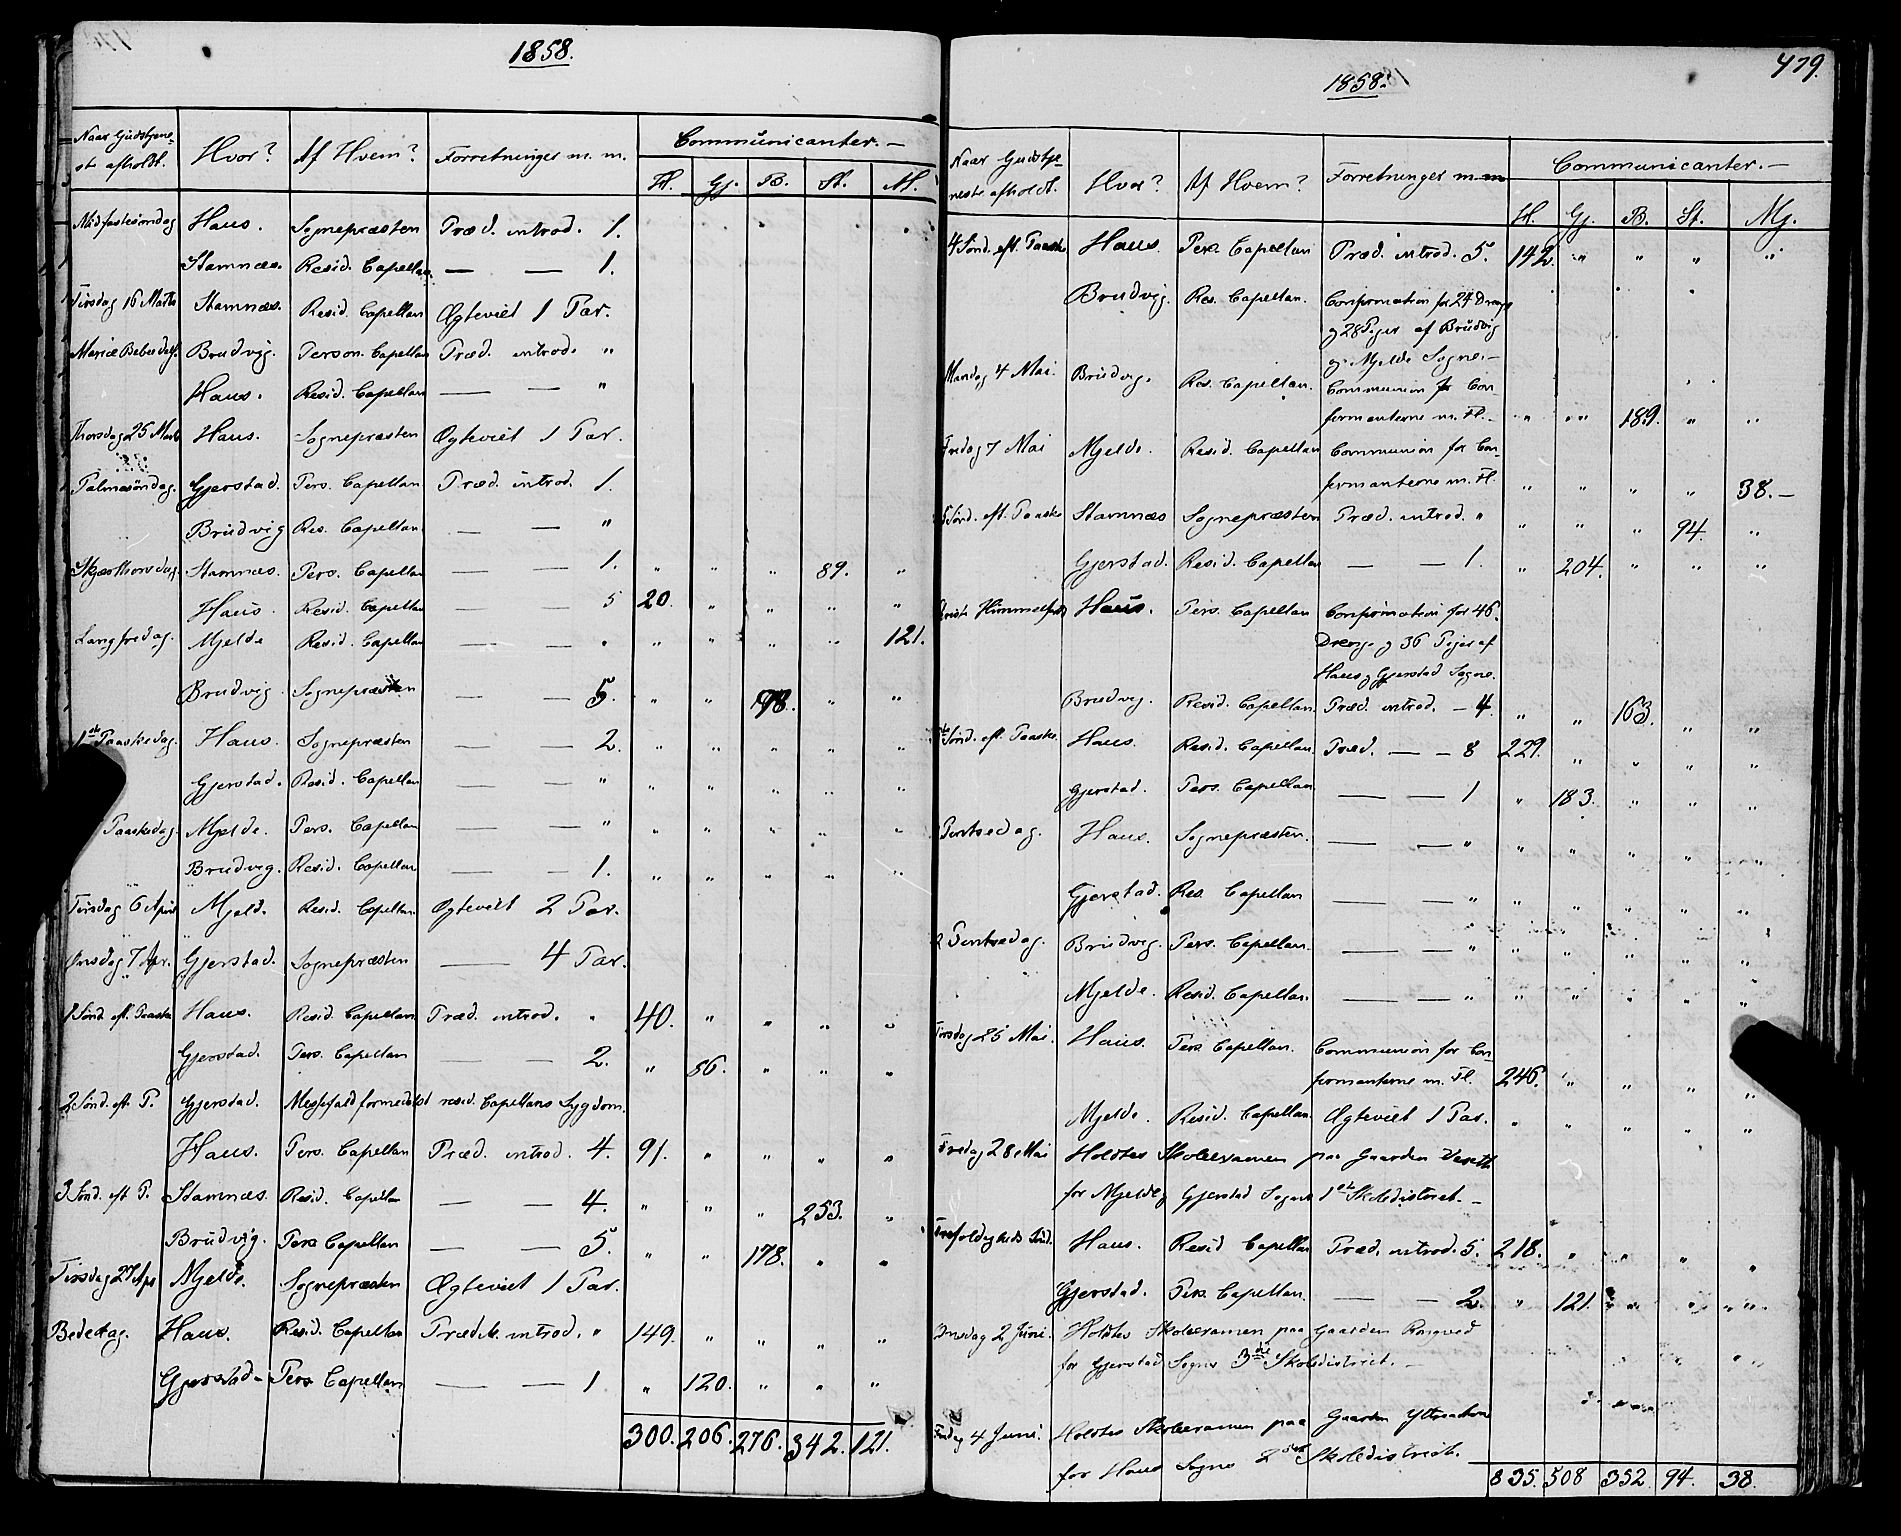 1858.
Naar Gudstjene-
ste afholdt. Hvor? Af Hvem? Forretninger m. m. Communicanter.-
H. Gj. B. St. M.
Midfastesöndag Haus. Sognepræsten Præd. introd. 1.
Stamnæs. Resid. Capellan. — — 1.
Tirsdag 16 Marts Stamnæs. Resid. Capellan Ægteviet 1 Par.
Mariæ Bebud. Brudvig. Person. Capellan Præd. introd. "
Haus. Resid. Capellan — — "
Thorsdag 25 Marts Haus. Sognepræsten Ægteviet 1 Par.
Palmesöndag. Gjerstad. Pers. Capellan Præd. introd. 1.
Brudvig Res. Capellan. — — "
Skjærthorsdag. Stamnæs. Pers. Capellan — — 1. " " " 89. "
Haus. Resid. Capellan — — 5 20. " " " "
Langfredag. Mjelde Resid. Capellan — — " " " " " 121.
Brudvig. Sognepræsten — — 5. " " 98. " "
1ste Paaskedag. Haus. Sognepræsten — — 2. " " " " "
Gjerstad. Resid. Capellan — — " " " " " "
Paaskedag. Mjelde. Pers. Capellan — — " " " " " "
Brudvig. Resid. Capellan — — 1. " " " " "
Tirsdag 6 April Mjelde. Resid. Capellan Ægteviet 2 Par.
Onsdag 7 Apr. Gjerstad. Sognepræsten — 4 Par.
1 Sönd. eft. Paaske Haus. Resid. Capellan Præd. introd. " 40. " " " "
Gjerstad. Pers. Capellan — — 2. " 86. " " "
2 Sönd. eft. P. Gjerstad. Messefald formedelst resid. Capellans Sygdom.
Haus. Pers. Capellan Præd. introd. 4. 91. " " " "
3 Sönd. eft P. Stamnæs. Resid. Capellan — — 4. " " " 253. "
Brudvig. Pers Capellan — — 5. " " 178. " "
Tirsdag 27 Apr Mjelde. Sognepræsten Ægteviet 1 Par.
Bededag. Haus. Resid. Capellan Præd. introd. " 149. " " " "
Gjerstad. Pers. Capellan — — 1 " 120. " " "
300. 206. 276. 342. 121.
479.
1858.
Naar Gudstje-
neste afholdt. Hvor? Af Hvem? Forretninger m.m Communicanter.-
H. Gj. B. St. Mj.
4 Sönd. eft. Paaske Haus. Pers. Capellan Præd. introd. 5. 142. " " " "
Brudvig. Res. Capellan. Confirmation for 24 Drenge
og 28 Piger af Brudvig
og Mjelde Sogne.-
Mandag 4 Mai. Brudvig. Res. Capellan. Communion for Con-
firmanterne m. Fl. " " 189. " "
Fredag 7 Mai Mjelde. Resid. Capellan Communion for Con-
firmanterne m. Fl. " " " " 38.-
5 Sönd. eft. Paaske Stamnæs Sognepræsten Præd. introd. " " " " 94. "
Gjerstad. Resid. Capellan — — 1. " 204. " " "
Christi Himmelfart Haus. Pers. Capellan Confirmation for 46.
Drenge og 36 Piger af
Haus og Gjerstad Sogne.
Brudvig. Resid. Capellan. Præd. introd. - 4. " " 163. " "
Sönd. eft. Paaske. Haus. Resid. Capellan. Præd. — — 8 229. " " " "
Gjerstad. Pers. Capellan. — — 1 " 183. " " "
Pintsedag. Haus. Sognepræsten. — — " " " " " "
Gjerstad. Res. Capellan — — " " " " " "
2 Pintsedag. Brudvig. Pers. Capellan. — — " " " " " "
Mjelde. Resid. Capellan. — — " " " " " "
Tirsdag 25 Mai. Haus. Pers. Capellan. Communion for Con-
firmanterne m. Fl. 246. " " " "
Mjelde. Resid. Capellan. Ægteviet 1 Par. " " " " "
Fredag 28 Mai Holdtes Skoleexamen paa Gaarden
for Mjelde og Gjerstad Sogns 1ste Skoledistrict.-
Trefoldigheds Sönd. Haus. Resid Capellan Præd. introd. 5. 218. " " " "
Gjerstad. Pers. Capellan. — — 2. " 121. " " "
Onsdag 2 Juni. Holdtes Skoleexamen paa Gaarden
for Gjerstad Sogns 3die Skoledistrict.-
Fredag 4 Juni. Holdtes Skoleexamen paa Gaarden
for Haus Sogns 2det Skoledistrict.
835. 508 352 94. 38.